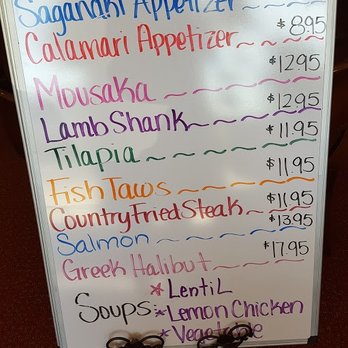 Saganaki Appetizer
Calamari Appetizer $8.95
Mousaka $12.95
Lamb Shank $12.95
Tilapia $11.95
Fish Taws $11.95
Country Fried Steak $11.95
Salmon $13.95
Greek Halibut $17.95
Soups: * Lentil
* Lemon Chicken
* Vegetable